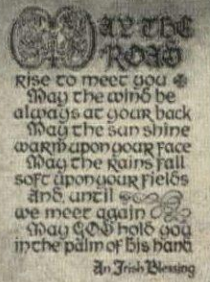 MAY THE
ROAD
rise to meet you
May the wind be
always at your back
May the sun shine
warm upon your face
May the rains fall
soft upon your fields
And, until
we meet again
May GOD hold you
in the palm of his hand
An Irish Blessing